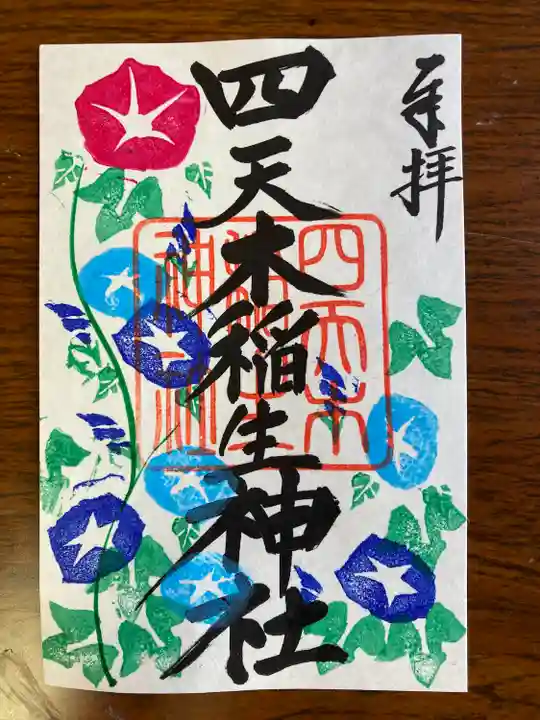 奉拝
四天木稲生神社
四天木
稲生
神社